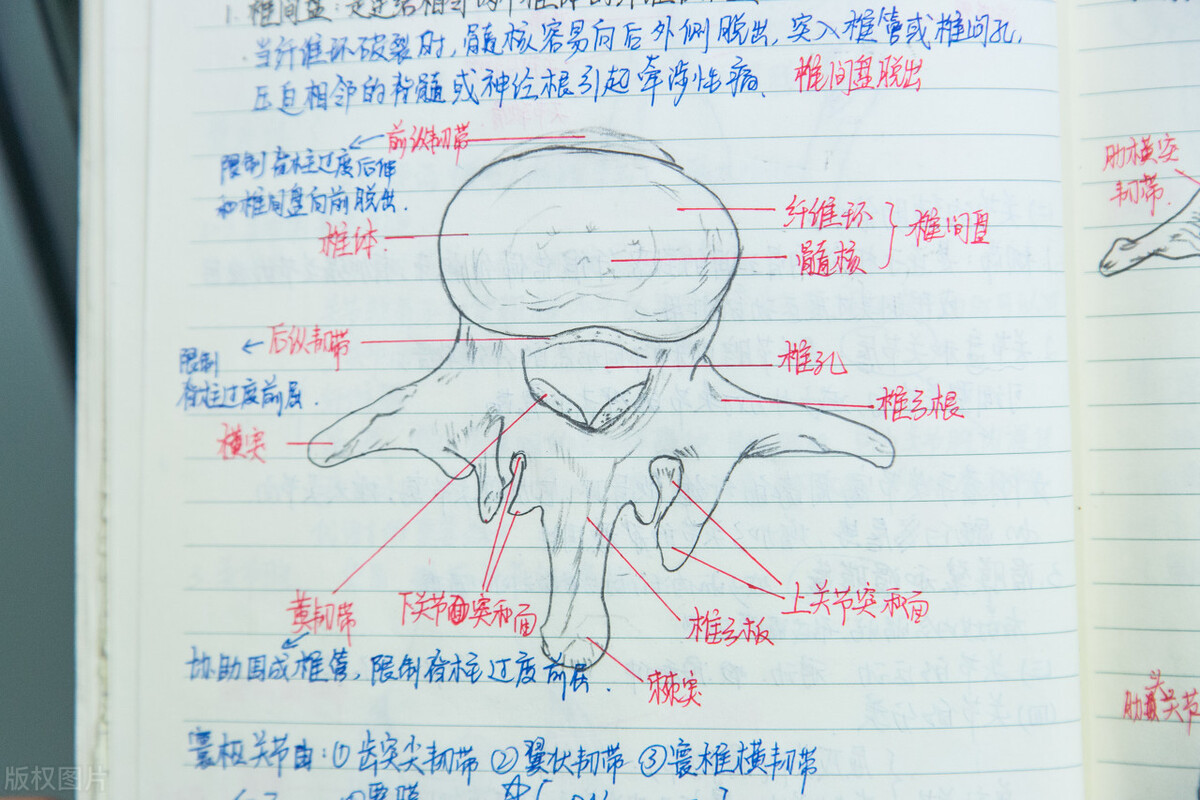 1. 椎间盘：是连结相邻两个椎体的纤维
当纤维环破裂时，髓核容易向后外侧脱出，突入椎管或椎间孔，
压迫相邻的脊髓或神经根引起牵涉性痛、 椎间盘脱出
前纵韧带
限制脊柱过度后伸
和椎间盘向前脱出.
椎体
纤维环
髓核
椎间盘
肋横突
韧带.
后纵韧带
限制
脊柱过度前屈.
椎孔
椎弓根
横突
黄韧带
下关节突和面
椎弓板
上关节突和面
协助围成椎管, 限制脊柱过度前屈.
棘突
肋头关节
寰枢关节由：① 齿突尖韧带 ② 翼状韧带 ③ 寰椎横韧带
④ 覆膜
版权图片